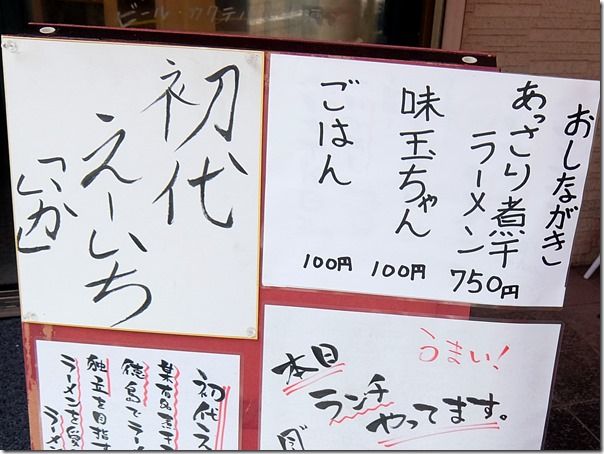 ビール・カクテル
初代
えーいち
「いか」
おしながき
あっさり煮干
ラーメン
750円
味玉ちゃん
100円
ごはん
100円
うまい!
本日
ランチ
やってます。
初代え
徳島でラー
独立を目指す
ラーメンを
ラーメン